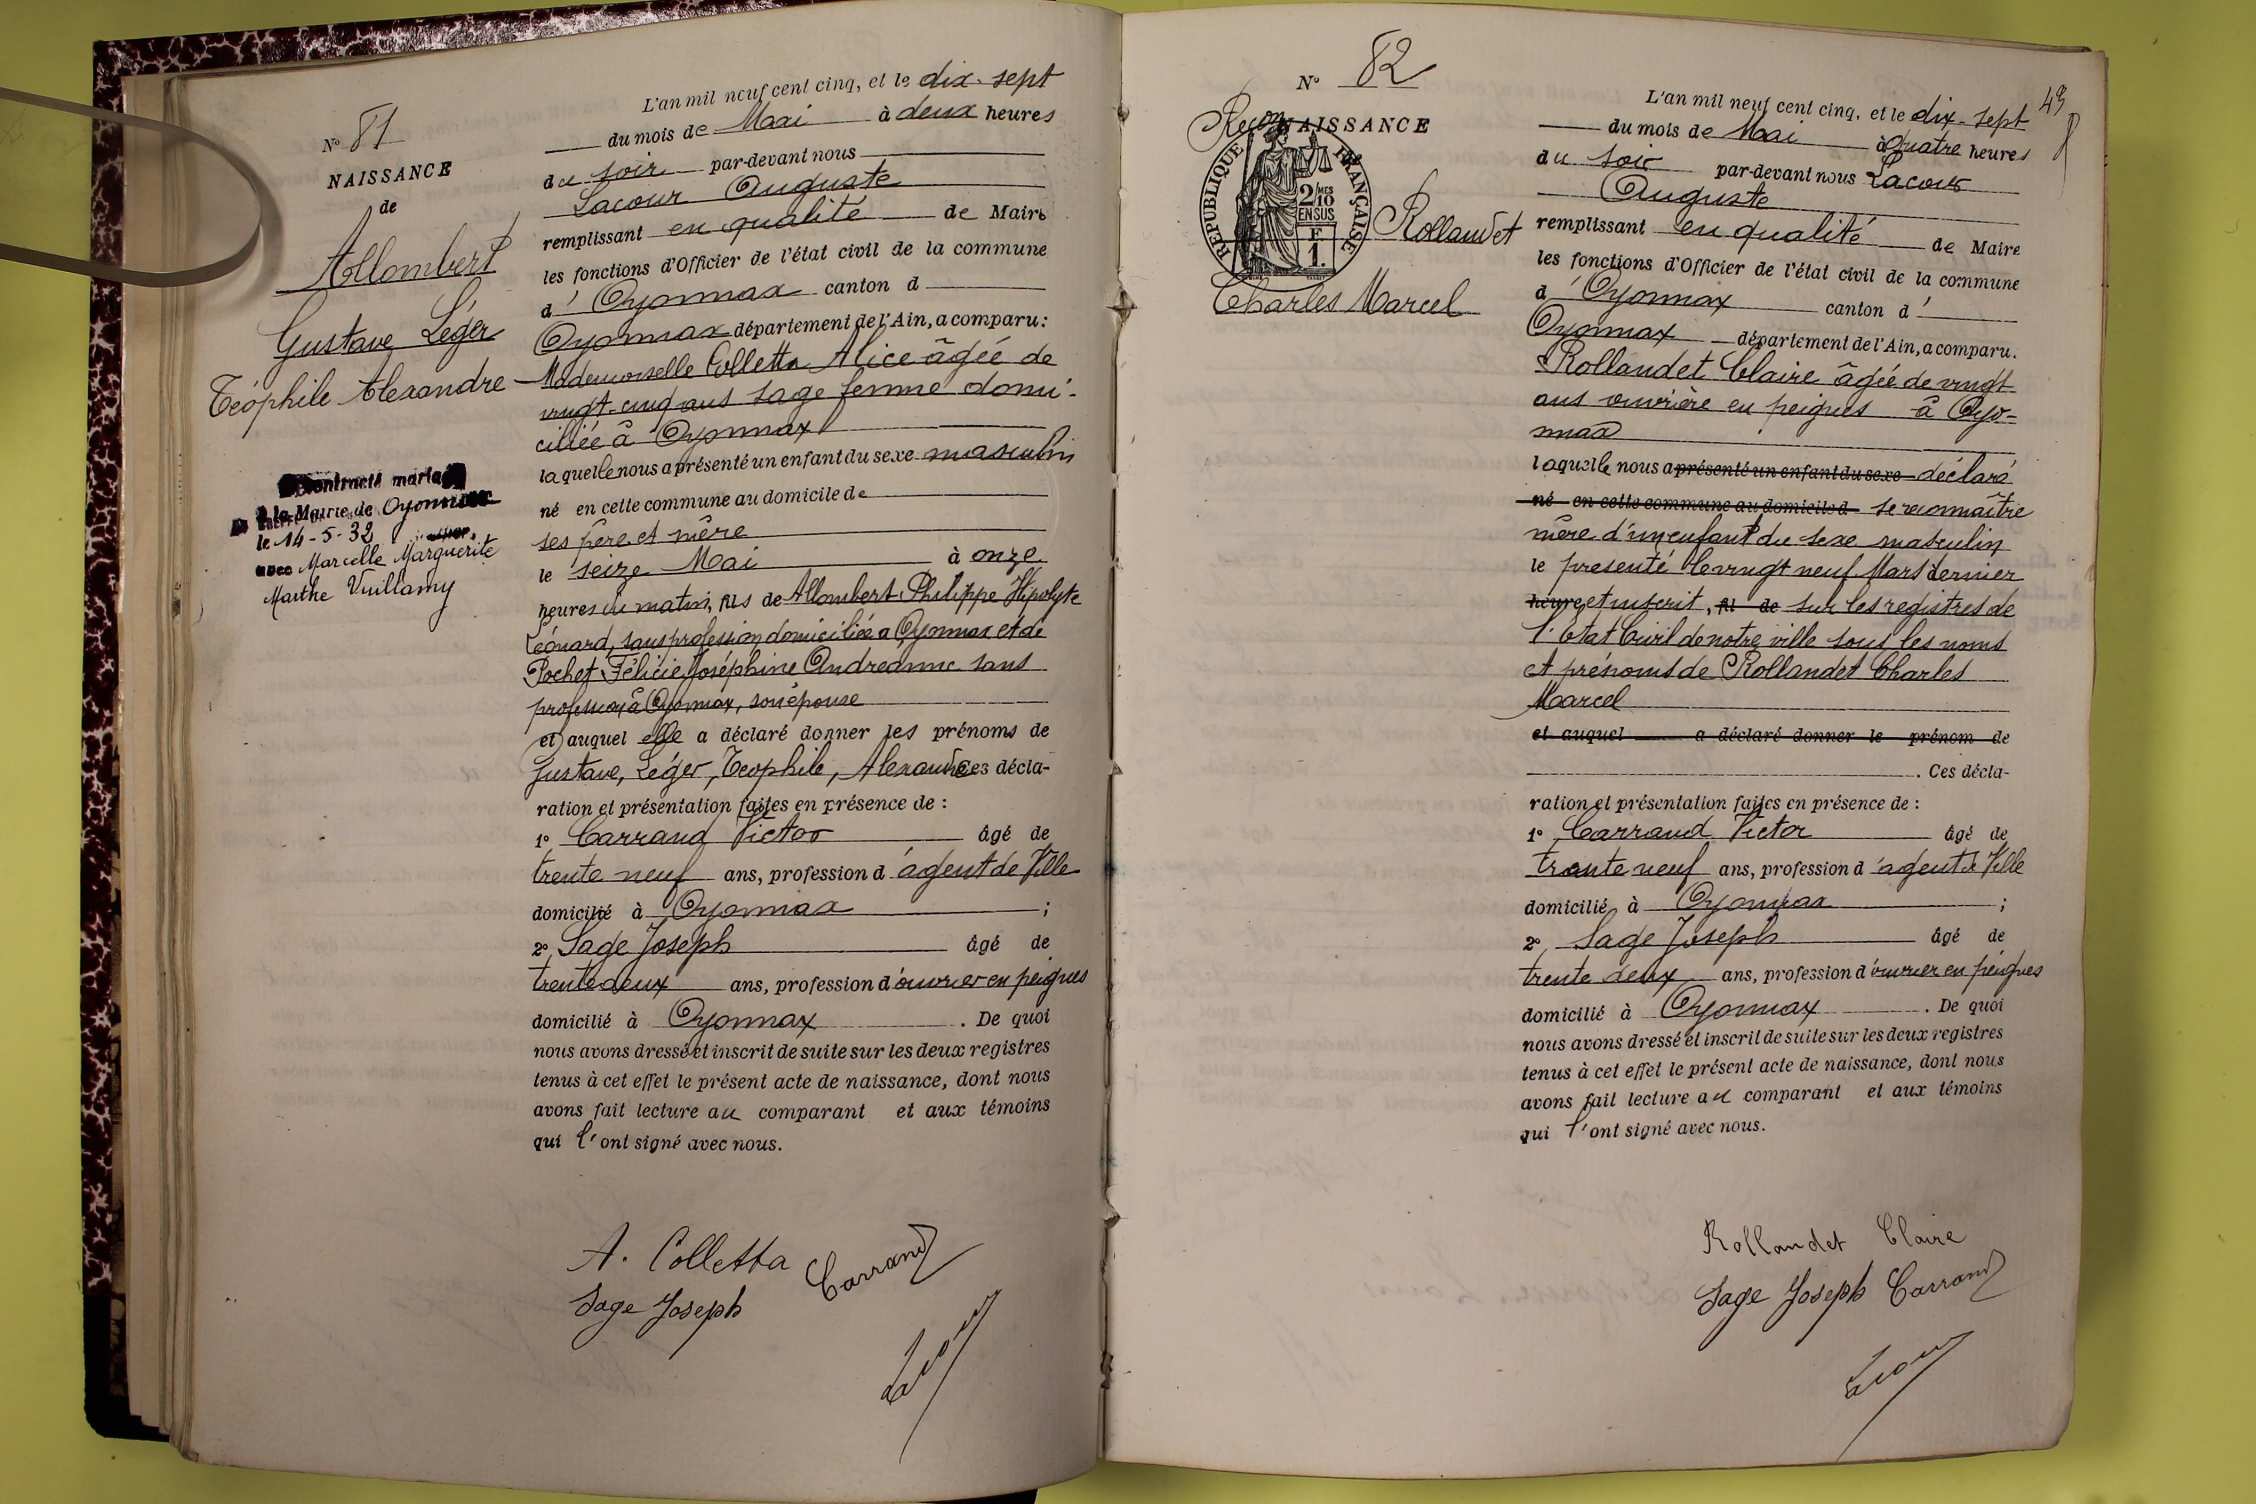 N° 81
NAISSANCE
de
Allombert
Gustave Léger
Téophile Alexandre
Contracté mariage
à la Mairie de Oyonnax
le 14-5-32
avec Marcelle Marguerite
Marthe Vuillamy
L'an mil neuf cent cinq, et le dix-sept
du mois de Mai à deux heures
du soir par-devant nous
Lacour Auguste
remplissant en qualité de Maire
les fonctions d'Officier de l'état civil de la commune
d' Oyonnax canton d
Oyonnax département de l'Ain, a comparu:
Mademoiselle Colletta Alice âgée de
vingt-cinq ans sage femme domi-
ciliée à Oyonnax
laquelle nous a présenté un enfant du sexe masculin
né en cette commune au domicile de
ses père et mère
le seize Mai à onze
heures du matin, fils de Allombert Philippe Hipolyte
Léonard, sans profession domiciliée a Oyonnax et de
Pochet Félicie Joséphine Andreanne sans
profession à Oyonnax, son épouse
et auquel elle a déclaré donner les prénoms de
Gustave, Léger, Téophile, Alexandre Ces décla-
ration et présentation faites en présence de :
1° Carraud Victor âgé de
trente neuf ans, profession d'agent de Ville
domicilié à Oyonnax ;
2° Sage Joseph âgé de
trente deux ans, profession d'ouvrier en peignes
domicilié à Oyonnax . De quoi
nous avons dressé et inscrit de suite sur les deux registres
tenus à cet effet le présent acte de naissance, dont nous
avons fait lecture au comparant et aux témoins
qui l'ont signé avec nous.
A. Colletta Carraud
Sage Joseph
Lacour
49
N° 82
Recon NAISSANCE
RÉPUBLIQUE FRANÇAISE
2/10 MES
EN SUS
F.
1.
Rollandet
Charles Marcel
L'an mil neuf cent cinq, et le dix-sept
du mois de Mai à quatre heures
du soir par-devant nous Lacour
Auguste
remplissant en qualité de Maire
les fonctions d'Officier de l'état civil de la commune
d' Oyonnax canton d'
Oyonnax département de l'Ain, a comparu.
Rollandet Claire âgée de vingt
ans ouvrière en peignes à Oyo-
nnax
laquelle nous a présenté un enfant du sexe déclaré
né en cette commune au domicile d se reconnaître
mère d'un enfant du sexe masculin
le presenté le vingt neuf Mars dernier
heure et inscrit, fil de sur les registres de
l'Etat Civil de notre ville sous les noms
et prénoms de Rollandet Charles
Marcel
et auquel a déclaré donner le prénom de
. Ces décla-
ration et présentation faites en présence de :
1° Carraud Victor âgé de
trente neuf ans, profession d'agent de Ville
domicilié à Oyonnax ;
2° Sage Joseph âgé de
trente deux ans, profession d'ouvrier en peignes
domicilié à Oyonnax . De quoi
nous avons dressé et inscrit de suite sur les deux registres
tenus à cet effet le présent acte de naissance, dont nous
avons fait lecture au comparant et aux témoins
qui l'ont signé avec nous.
Rollandet Claire
Sage Joseph Carraud
Lacour